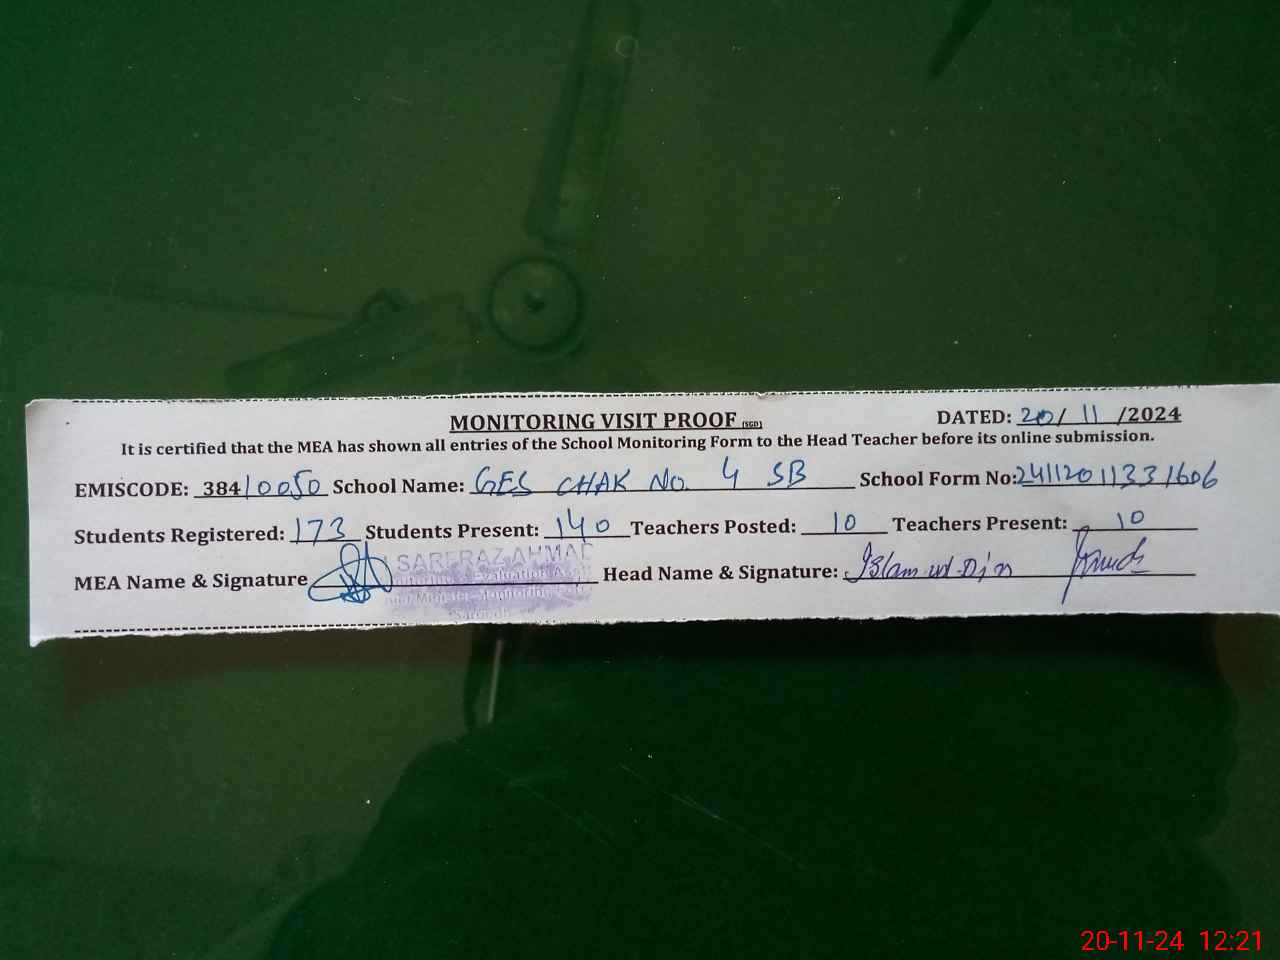 MONITORING VISIT PROOF (SGD)
DATED: 20/11/2024
It is certified that the MEA has shown all entries of the School Monitoring Form to the Head Teacher before its online submission.
EMISCODE: 38410050 School Name: GES CHAK No. 4 SB School Form No: 24112011331606
Students Registered: 173 Students Present: 140 Teachers Posted: 10 Teachers Present: 10
MEA Name & Signature SARFRAZ AHMAD Head Name & Signature: Islam-ud-Din
Monitoring & Evaluation
Minister Monitoring
20-11-24 12:21